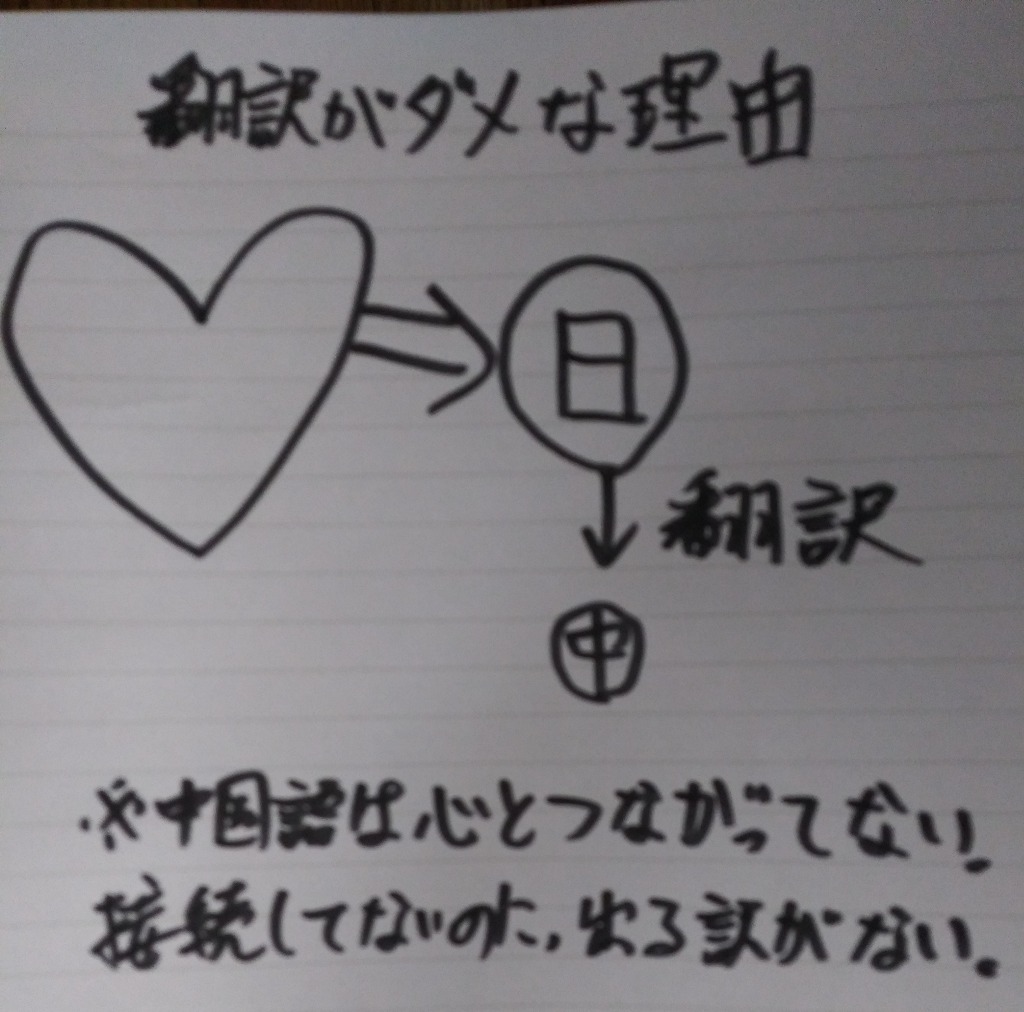 翻訳がダメな理由
日
翻訳
中
※中国語は心とつながってない。
接続してないのに、出る訳がない。